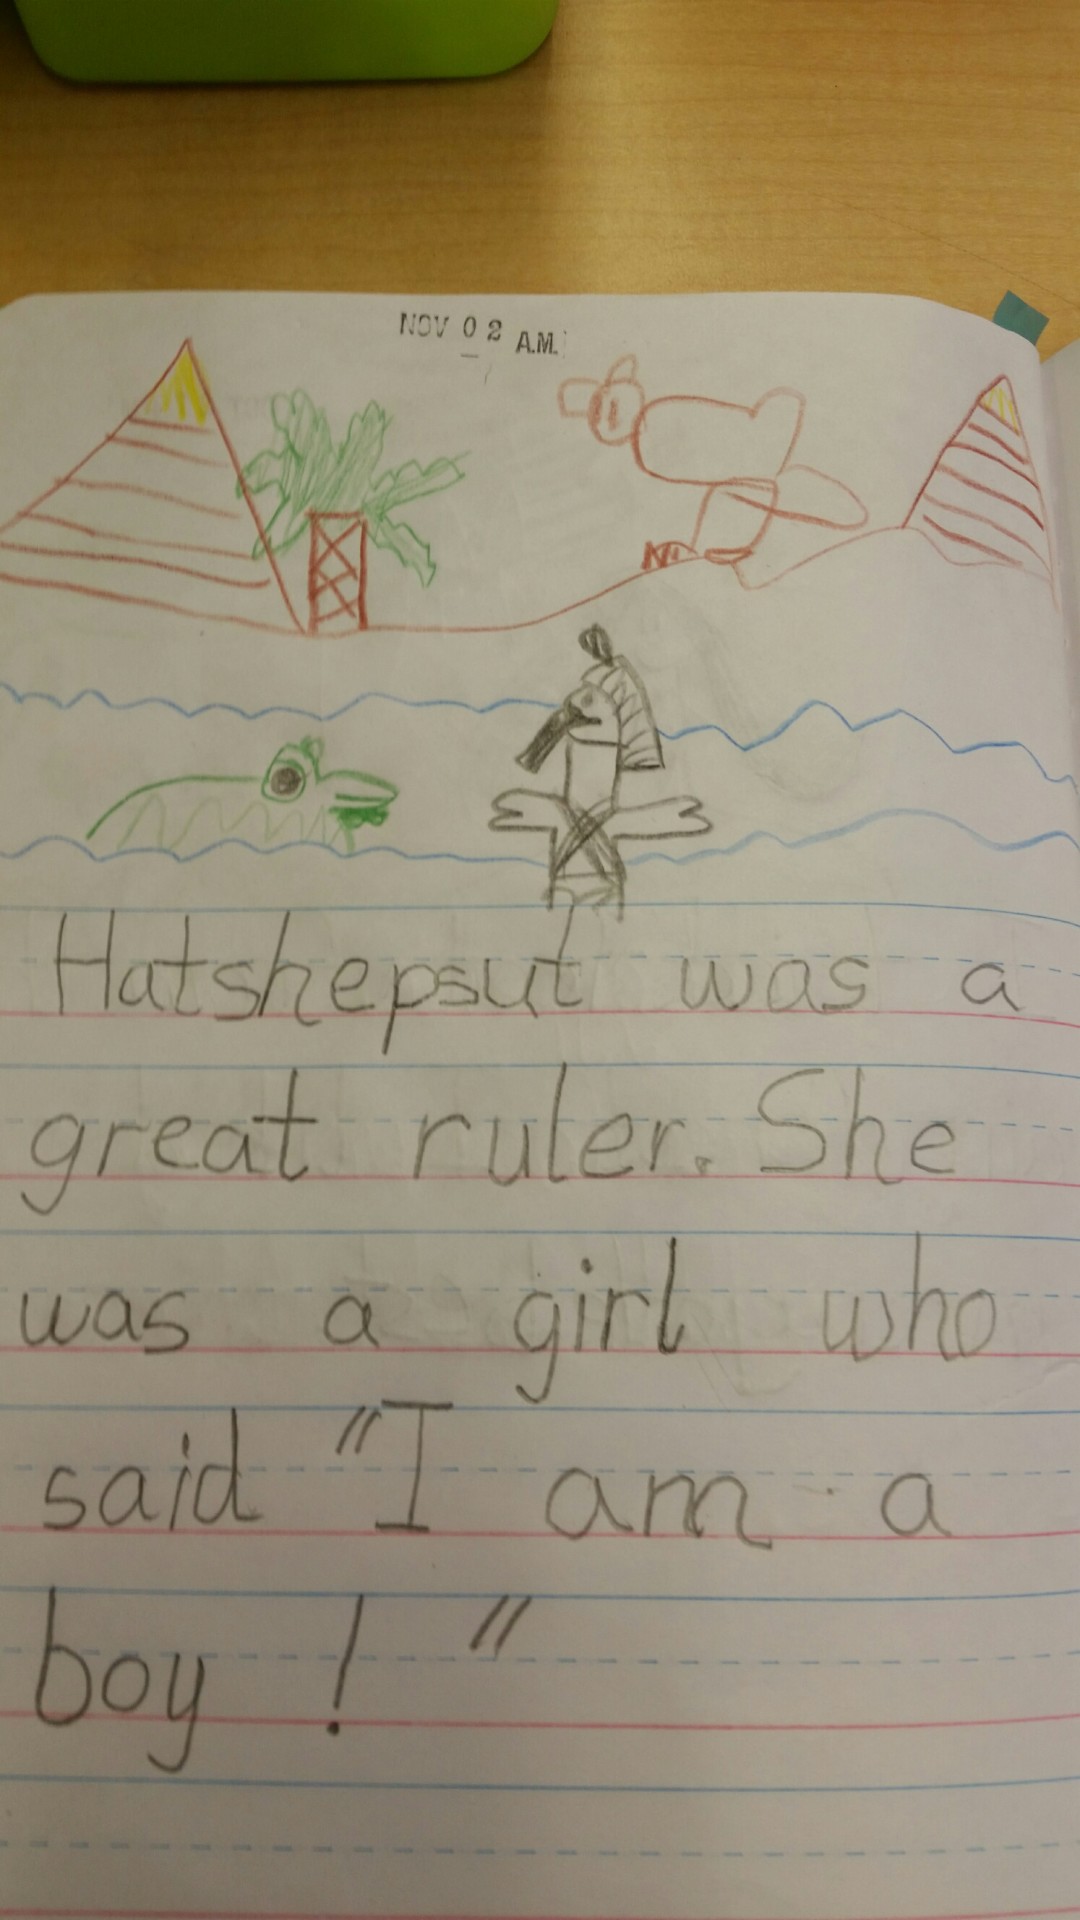 NOV 02 A.M.
Hatshepsut was a
great ruler. She
was a girl who
said "I am a
boy!"